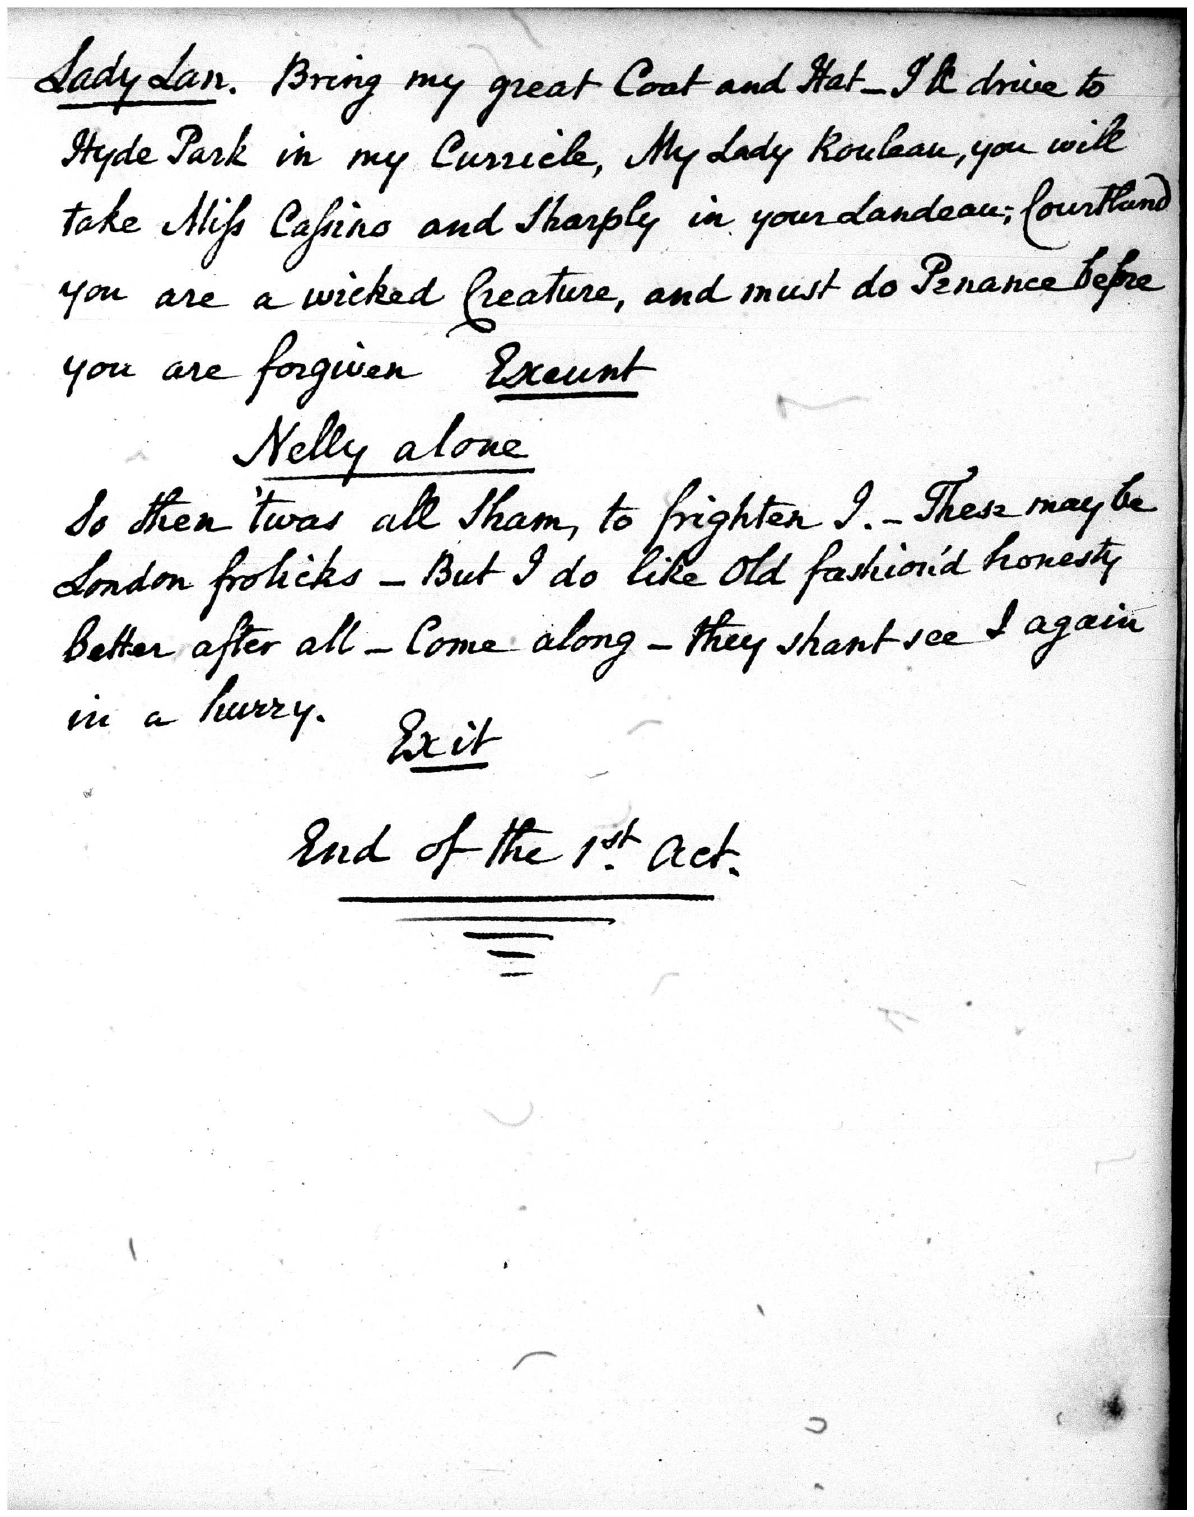 Lady Lan. Bring my great Coat and Hat – I'll drive to
Hyde Park in my Curricle, My Lady Rouleau, you will
take Miſs Caſsino and Sharply in your Landeau; Courtland
you are a wicked Creature, and must do Penance before
you are forgiven Exeunt
Nelly alone
So then 'twas all Sham, to frighten I. – These may be
London frolicks – But I do like Old fashion'd honesty
better after all – Come along – they shant see I again
in a hurry.
Exit
End of the 1st. Act.